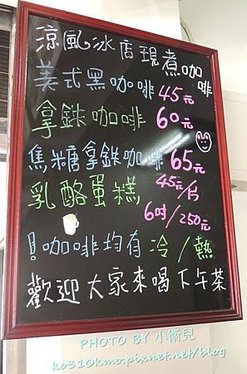 涼風冰店現煮咖啡
美式黑咖啡45元
拿鉄咖啡60元
焦糖拿鉄咖啡65元
乳酪蛋糕45元/片
6吋/250元
!咖啡均有冷/熱
歡迎大家來喝下午茶
PHOTO BY 小衛兒
ko510kmo.pixnet.net/blog